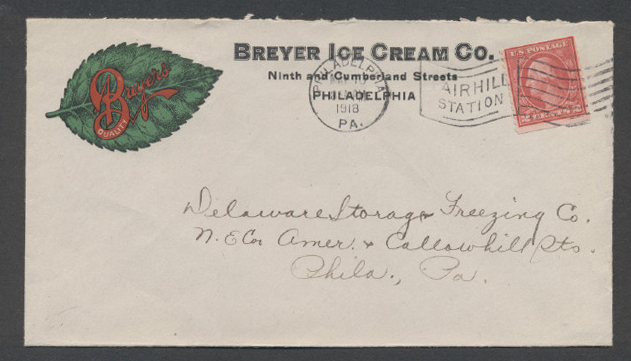 Breyers
QUALITY
BREYER ICE CREAM CO.
Ninth and Cumberland Streets
PHILADELPHIA
PHILADELPHIA
1918
PA.
AIRHILL
STATION
U.S. POSTAGE
Delaware Storage & Freezing Co.
N. E Cor Amer. & Callowhill Sts.
Phila., Pa.